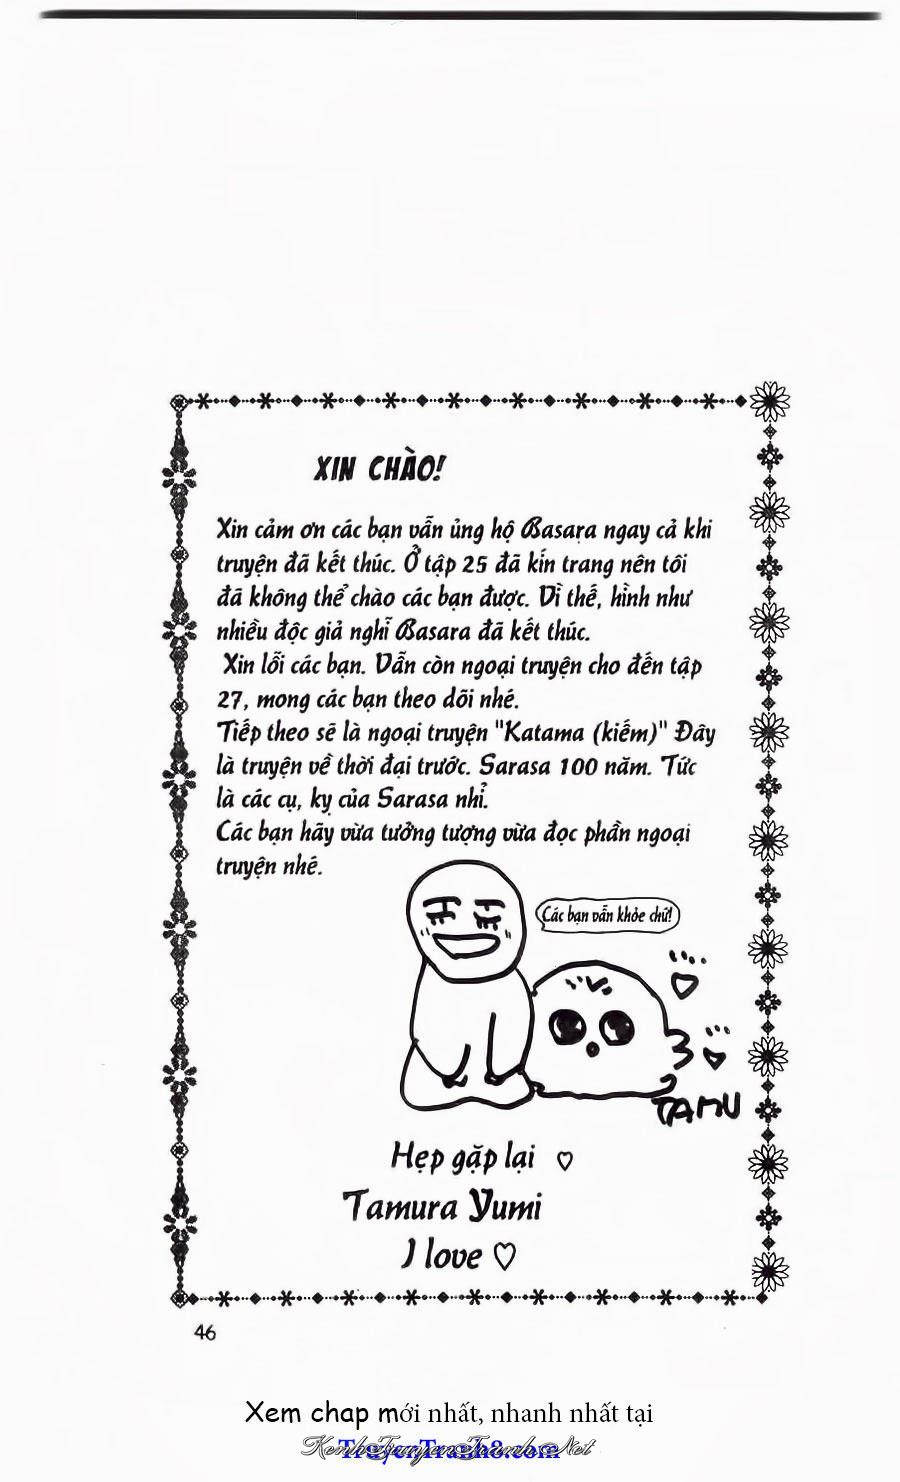 XIN CHÀO!
Xin cảm ơn các bạn vẫn ủng hộ Basara ngay cả khi
truyện đã kết thúc. Ở tập 25 đã kín trang nên tôi
đã không thể chào các bạn được. Vì thế, hình như
nhiều độc giả nghĩ Basara đã kết thúc.
Xin lỗi các bạn. Vẫn còn ngoại truyện cho đến tập
27, mong các bạn theo dõi nhé.
Tiếp theo sẽ là ngoại truyện "Katama (kiếm)" Đây
là truyện về thời đại trước. Sarasa 100 năm. Tức
là các cụ, kỵ của Sarasa nhỉ.
Các bạn hãy vừa tưởng tượng vừa đọc phần ngoại
truyện nhé.
Các bạn vẫn khỏe chứ!
TAMU
Hẹp gặp lại ♡
Tamura Yumi
I love ♡
46
Xem chap mới nhất, nhanh nhất tại
TruyenTranh8.com
KenhTruyenTranh.Net